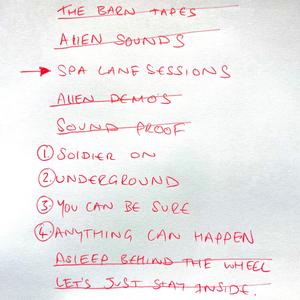 THE BARN TAPES
ALIEN SOUNDS
SPA LANE SESSIONS
ALIEN DEMOS
SOUND PROOF
1. SOLDIER ON
2. UNDERGROUND
3. YOU CAN BE SURE
4. ANYTHING CAN HAPPEN
ASLEEP BEHIND THE WHEEL
LET'S JUST STAY INSIDE.